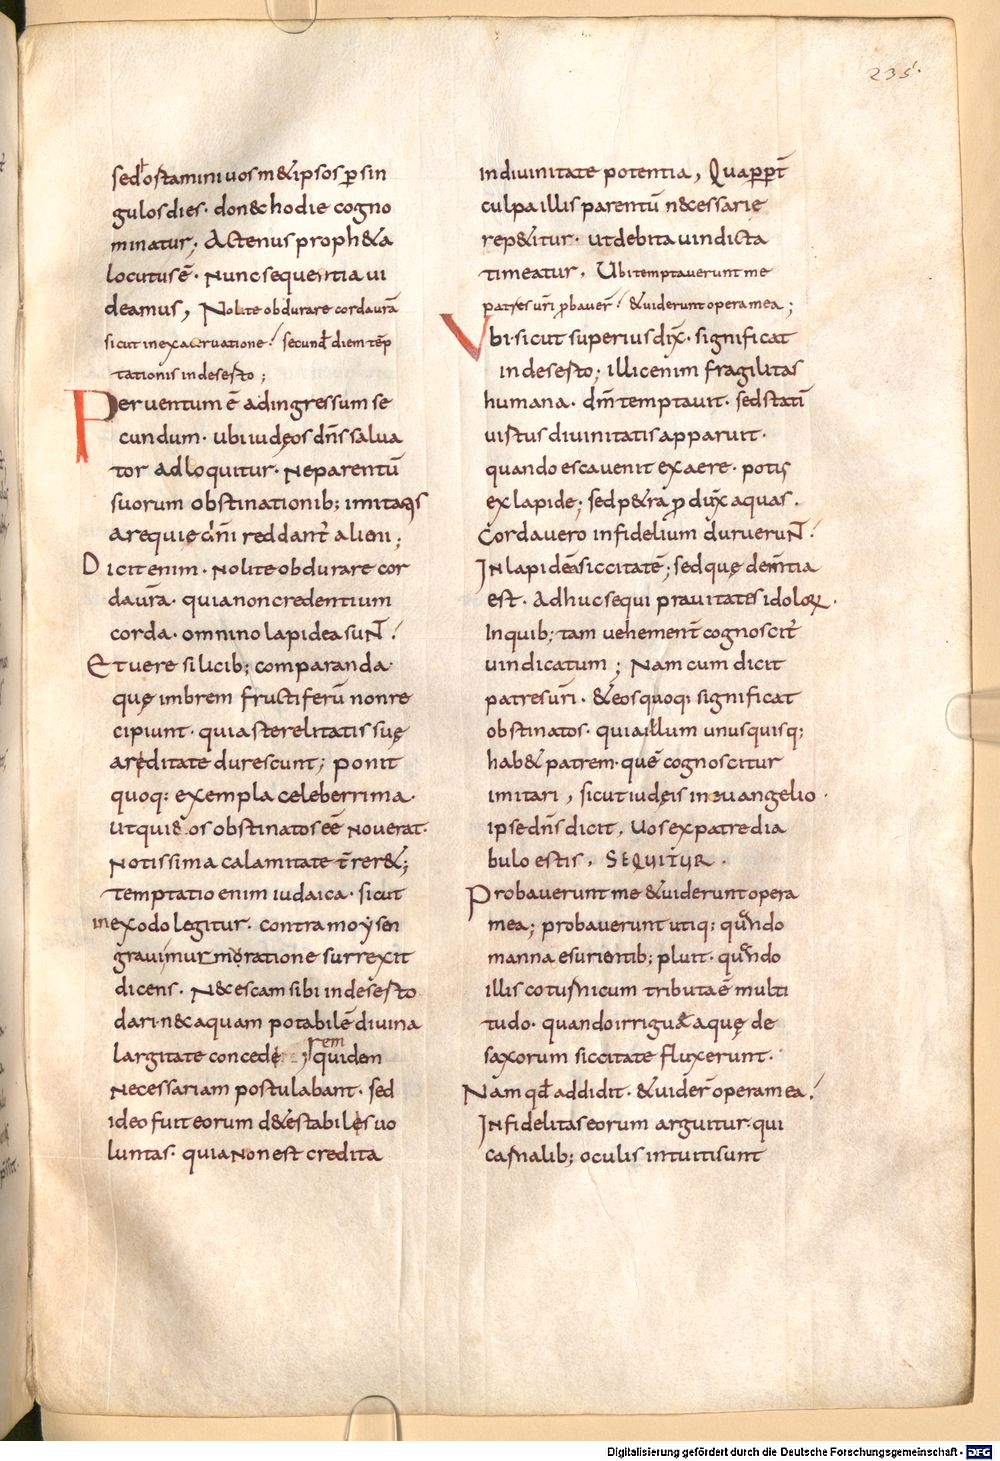 235.
sed hostamini uosm&ipsos ꝑ sin
gulos dies· don&c hodie cogno
minatur; Actenus proph&a
locutus ē· Nunc sequentia ui
deamus, Nolite obdurare corda ur̄a
sicut in exacervatione! secund̄ diem tēp
tationis in deserto;
Peruentum ē ad ingressum se
cundum· ubi iudęos dn̄s salua
tor adloquitur· Ne parentū
suorum obstinationib; imita
a requię dn̄i reddant̄ alieni;
Dicit enim· Nolite obdurare cor
da ur̄a· quia non credentium
corda· omnino lapidea sunt!
Et uere silicib; comparanda·
quę imbrem fructiferū non re
cipiunt· quia sterelitatis suę
areditate durescunt; ponit
quoq: exempla celeberrima·
ut qui eos obstinatos eē noverat·
Notissima calamitate t̄rer&;
temptatio enim iudaica· sicut
in exodo legitur· contra moysen
gravi murmoratione surrexit
dicens· N& escam sibi in deserto
dari· n&c aquam potabilē divina
largitate concede; rem quidem
Necessariam postulabant· sed
ideo fuit eorum d&estabiles uo
luntas· quia non est credita
in divinitate potentia, Quaꝓpt̄
culpa illis parentū n&cessarie
rep&itur· ut debita uindicta
timeatur, Ubi temptaverunt me
patres ur̄i ꝓbaver̄! & uiderunt opera mea;
Vbi· sicut superius dix̄· significat
in deserto; illic enim fragilitas
humana· dm̄ temptavit· sed statī
uistus divinitatis apparuit·
quando esca venit ex aere· potus
ex lapide; sed p&ra ꝓdux̄ aquas·
Corda vero infidelium duruerunt!
In lapideā siccitatē; sed quę dem̄tia
est· Adhuc sequi pravitates idoloꝝ·
In quib; tam vehement̄ cognoscit̄
uindicatum; Nam cum dicit
patres ur̄i· & eos quoq; significat
obstinatos· quia illum unusquisq;
hab& patrem· quē cognoscitur
imitari, sicut iudęis in euangelio·
ipse dn̄s dicit, Uos ex patre dia
bulo estis, SEQUITUR·
Probaverunt me & uiderunt opera
mea; probaverunt utiq: quando
manna esurientib; pluit· quando
illis coturnicum tributa ē multi
tudo· quando irriguæ aquę de
saxorum siccitate fluxerunt·
Nam qđ addidit· & uider̄ opera mea!
Infidelitas eorum arguitur· qui
carnalib; oculis intuiti sunt
Digitalisierung gefördert durch die Deutsche Forschungsgemeinschaft - DFG